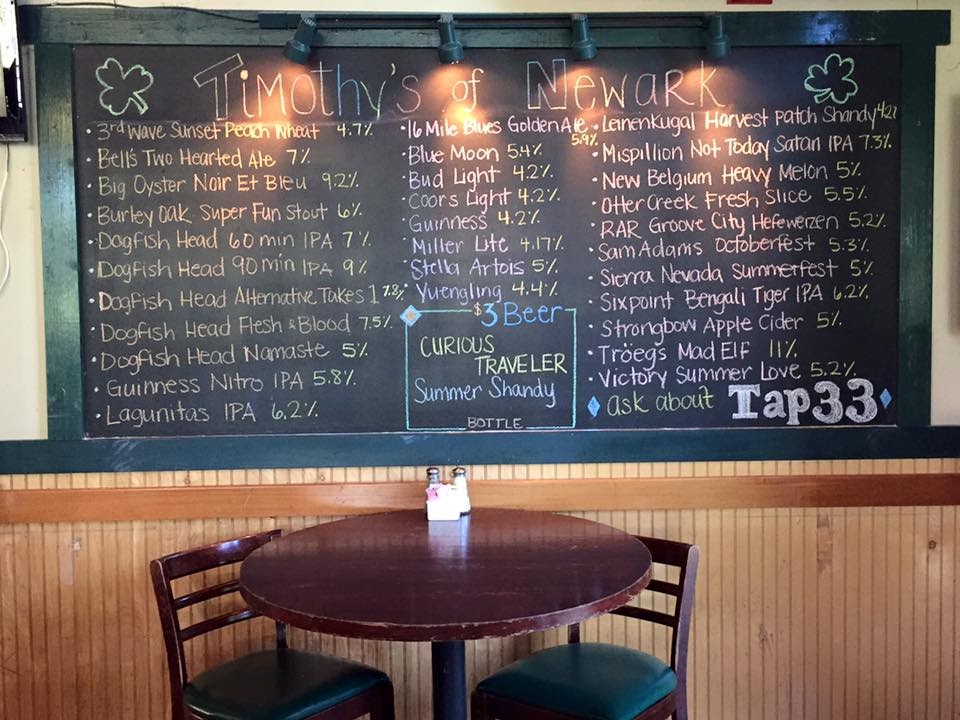 Timothy's of Newark
• 3rd Wave Sunset Peach Wheat 4.7%
• Bell's Two Hearted Ale 7%
• Big Oyster Noir Et Bleu 9.2%
• Burley Oak Super Fun Stout 6%
• Dogfish Head 60 min IPA 7%
• Dogfish Head 90 min IPA 9%
• Dogfish Head Alternative Takes 1 7.8%
• Dogfish Head Flesh & Blood 7.5%
• Dogfish Head Namaste 5%
• Guinness Nitro IPA 5.8%
• Lagunitas IPA 6.2%
• 16 Mile Blues Golden Ale 5.9%
• Blue Moon 5.4%
• Bud Light 4.2%
• Coors Light 4.2%
• Guinness 4.2%
• Miller Lite 4.17%
• Stella Artois 5%
• Yuengling 4.4%
$3 Beer
CURIOUS
TRAVELER
Summer Shandy
BOTTLE
• Leinenkugal Harvest Patch Shandy
• Mispillion Not Today Satan IPA 7.3%
• New Belgium Heavy Melon 5%
• Otter Creek Fresh Slice 5.5%
• RAR Groove City Hefeweizen 5.2%
• Sam Adams Octoberfest 5.3%
• Sierra Nevada Summerfest 5%
• Sixpoint Bengali Tiger IPA 6.2%
• Strongbow Apple Cider 5%
• Tröegs Mad Elf 11%
• Victory Summer Love 5.2%
ask about Tap33